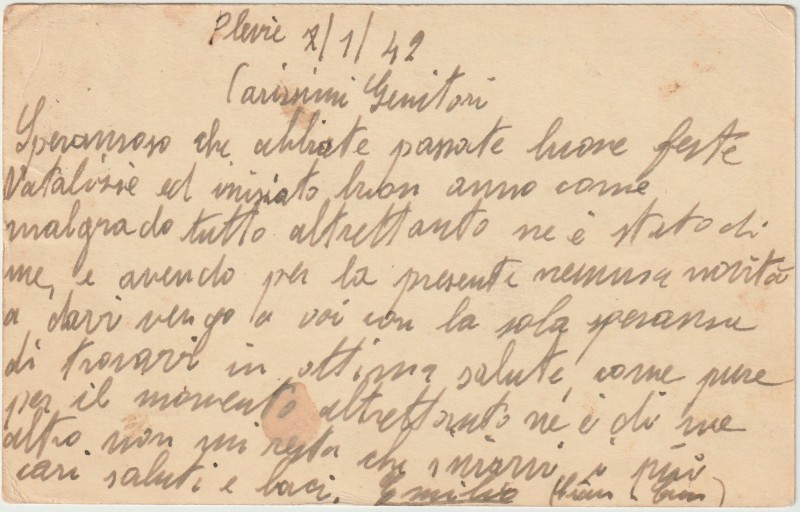 Plevie 7/1/42
Carissimi Genitori
Speransoso che abbiate passate buone feste
Natalizie ed inisiato buon anno come
malgrado tutto altrettanto ne è stato di
me, e avendo per la presente nemusa novità
a darvi vengo a voi con la sola speransa
di trovarvi in ottima salute, come pure
per il momento altrettanto ne è di me
altro non mi resta che inviarvi i più
cari saluti e baci. Emilio